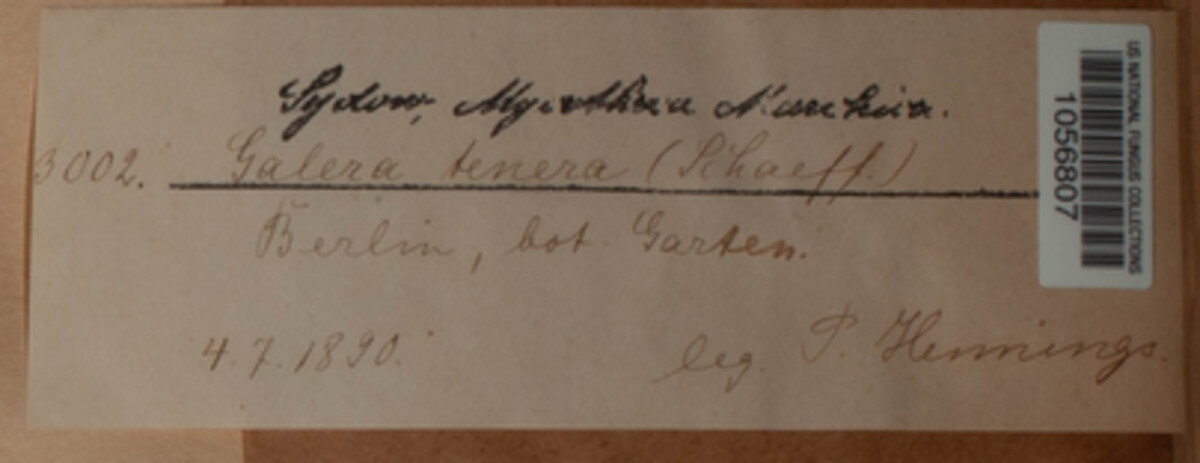 Sydow, Mycotheca Marchica.
3002. Galera tenera (Schaeff.)
Berlin, bot. Garten.
4.7.1890.
leg. P. Hennings.
US NATIONAL FUNGUS COLLECTIONS
1056807